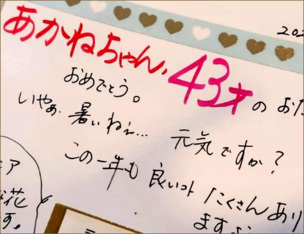 202
あかねちゃん、43才のお
おめでとう。
いやぁ、暑いねぇ…
元気ですか?
この一年も 良いコト たくさんあり
ますよ
ア
花
す。